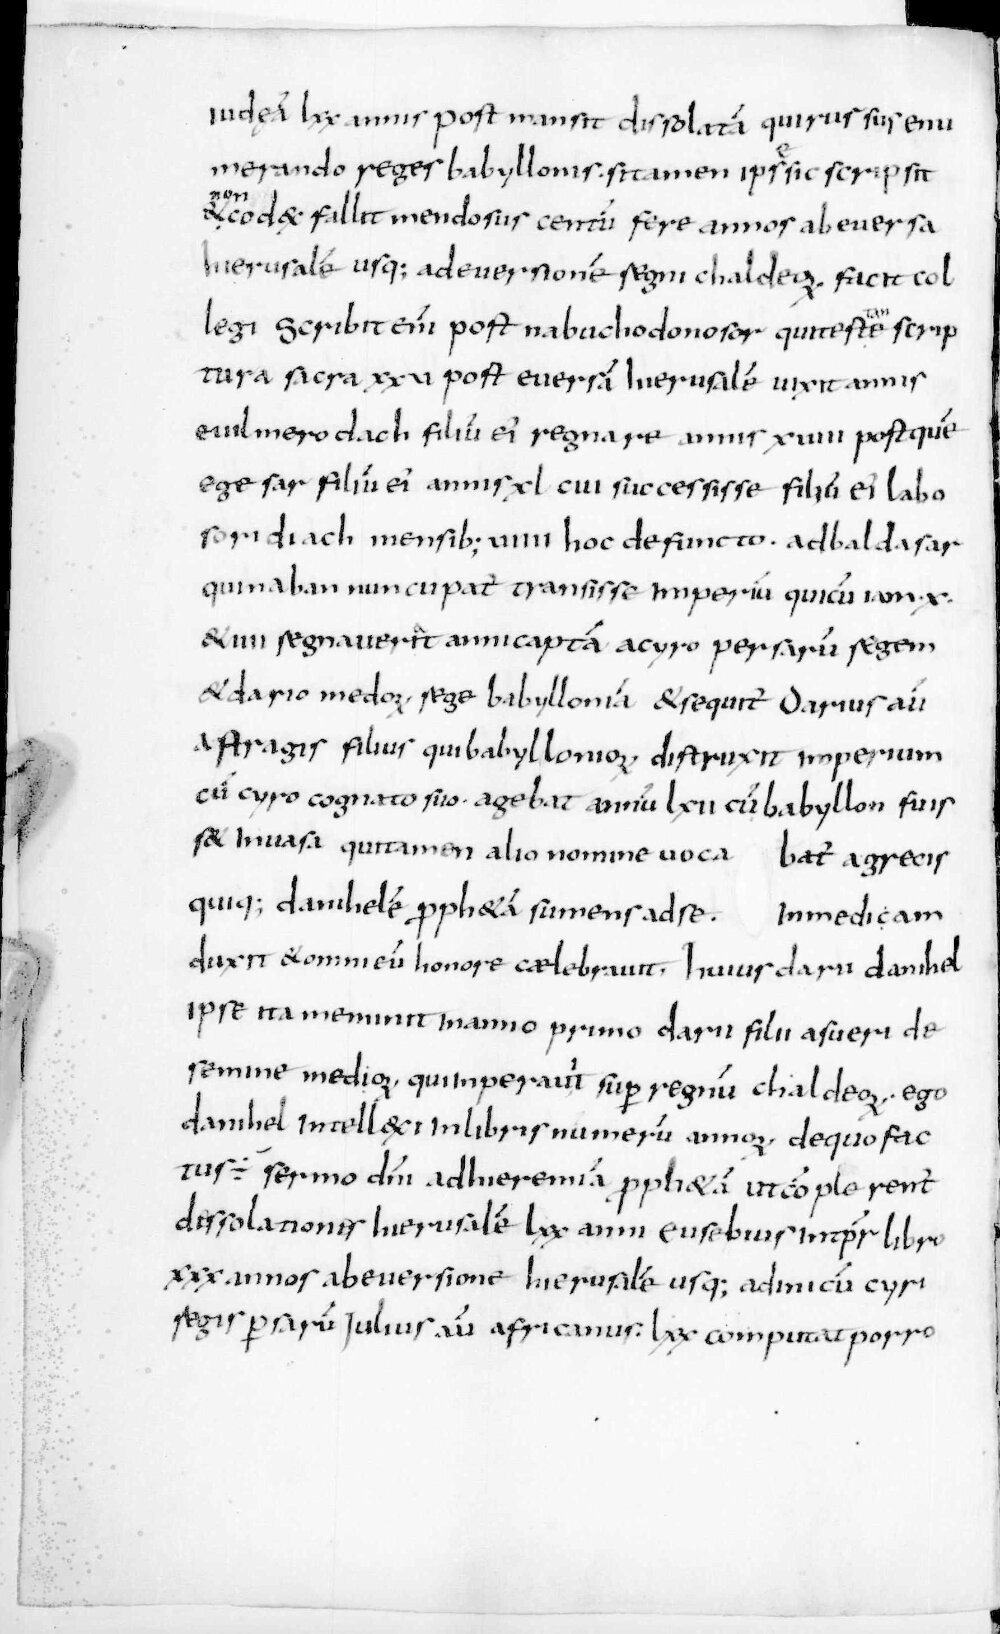 iudęā lxx annis post mansit dissolatā quirursus enu
merando reges babyllonis. sitamen ipsesic scripsit
& non codex fallit mendosus centū fere annos abeversa
hierusalē usq; adeversionē regni chaldeoꝝ. facit col
legi Scribit eni̅ post nabuchodonosor quiteste tan scrip
tura sacra xxvi post eversā hierusalē vixit annis
evilmerodach filiū ei̅ regnare annis xviii postquē
egesar filiū ei̅ annis xl cui successisse filiū ei̅ labo
soridiach mensib; viiii hoc defuncto. adbaldasar
quinaban nuncupat̅ transisse imperiū quicū iam .x.
& vii regnaverit anni captā acyro persarū regem
& dario medoꝝ rege babylloniā & sequit̅ Darius aū
astragis filius quibabyllonioꝝ distruxit imperium
cū cyro cognato suo. agebat annū lxii cū babyllon fuis
s& invasa quitamen alio nomine voca bat̅ agrecis
quiq; danihelē proph&ā sumens adse. Inmedicam
duxit & omni eū honore cælebravit. huius darii danihel
ipse ita meminit inanno primo darii filii asueri de
semine medioꝝ, quiimperavit sup̱ regnū chaldeoꝝ. ego
danihel intellexi inlibris numerū annoꝝ, dequo fac
tus÷ sermo dn̄i adhieremiā proph&ā ut cōplerent̅
dissolationis hierusalē lxx anni eusebius intp̅r libro
xxx annos abeversione hierusalē usq; adinicū cyri
regis p̱sarū Julius aū africanus. lxx computat porro